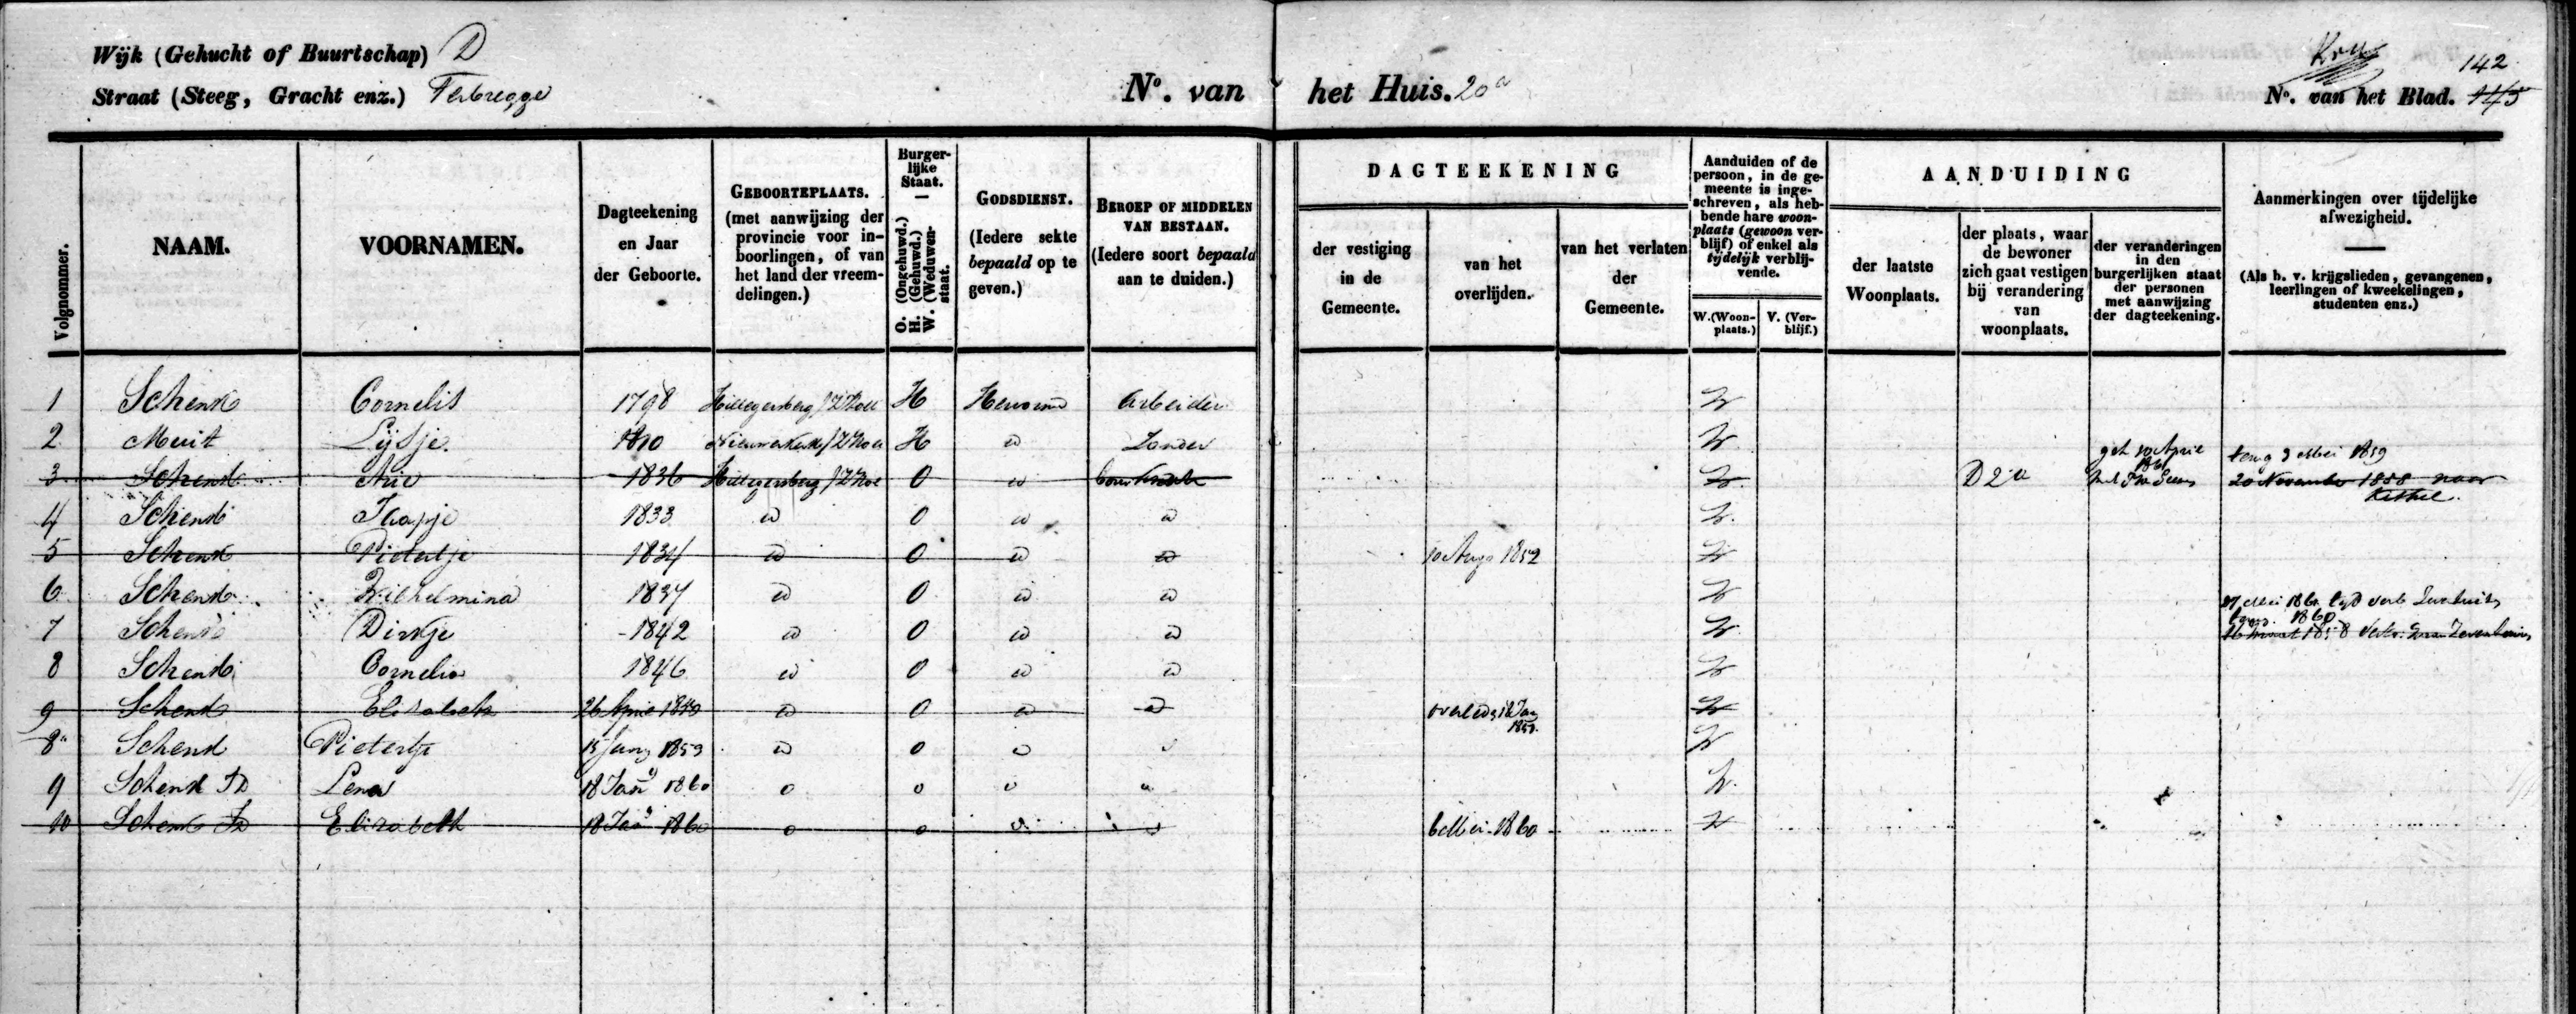 Wijk (Gehucht of Buurtschap) D
Straat (Steeg, Gracht enz.) Terbregge
No. van het Huis. 20a
142
No. van het Blad. 145
Volgnommer.
NAAM.
VOORNAMEN.
Dagteekening
en Jaar
der Geboorte.
GEBOORTEPLAATS.
(met aanwijzing der
provincie voor in-
boorlingen, of van
het land der vreem-
delingen.)
Burger-
lijke
Staat.
O. (Ongehuwd.)
H. (Gehuwd.)
W. (Weduwen-
staat.
GODSDIENST.
(Iedere sekte
bepaald op te
geven.)
BEROEP OF MIDDELEN
VAN BESTAAN.
(Iedere soort bepaald
aan te duiden.)
DAGTEEKENING
der vestiging
in de
Gemeente.
van het
overlijden.
van het verlaten
der
Gemeente.
Aanduiden of de
persoon, in de ge-
meente is inge-
schreven, als heb-
bende hare woon-
plaats (gewoon ver-
blijf) of enkel als
tijdelijk verblij-
vende.
W. (Woon-
plaats.)
V. (Ver-
blijf.)
AANDUIDING
der laatste
Woonplaats.
der plaats, waar
de bewoner
zich gaat vestigen
bij verandering
van
woonplaats.
der veranderingen
in den
burgerlijken staat
der personen
met aanwijzing
der dagteekening.
Aanmerkingen over tijdelijke
afwezigheid.
(Als b. v. krijgslieden, gevangenen,
leerlingen of kweekelingen,
studenten enz.)
1 Schenk Cornelis 1798 Hillegersberg / ZHoll H Hervormd Arbeider W
2 Muit Lijsje 1810 Nieuwerkerk / ZHoll H id Zonder W
terug 3 Mei 1859
3 Schenk Arie 1836 Hillegersberg / ZHol O id W D 2a 20 November 1858 naar
Kethel.
4 Schenk Jaapje 1833 id O id id W.
5 Schenk Pietertje 1834 id O id id 10 Aug 1852 W
6 Schenk Wilhelmina 1837 id O id id W
27 Mei 1861
7 Schenk Dirkje 1842 id O id id W
8 Schenk Cornelia 1846 id O id id W
9 Schenk Elizabeth 26 April 1850 id O id id W
8a Schenk Pietertje 15 1853 id O id W
9 Schenk Lena 18 Jan 1860 W.
10 Schenk Elizabeth 18 Jan 1860 6 Mei 1860 W